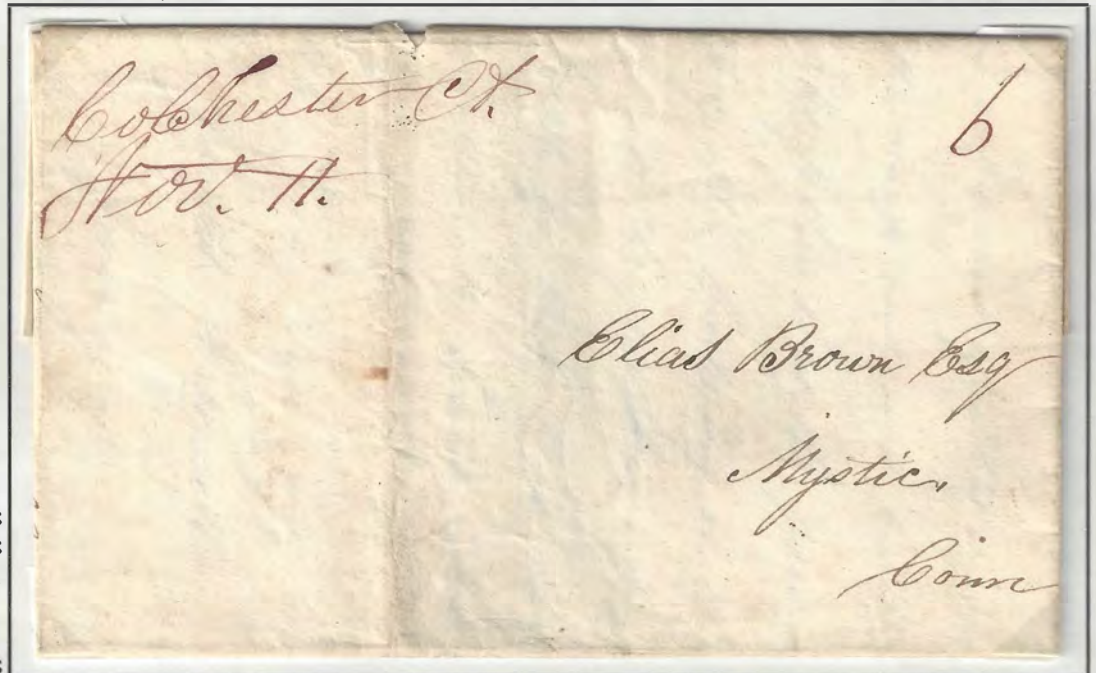 Colchester Ct.
Nov. 11.
6
Elias Brown Esq
Mystic,
Conn